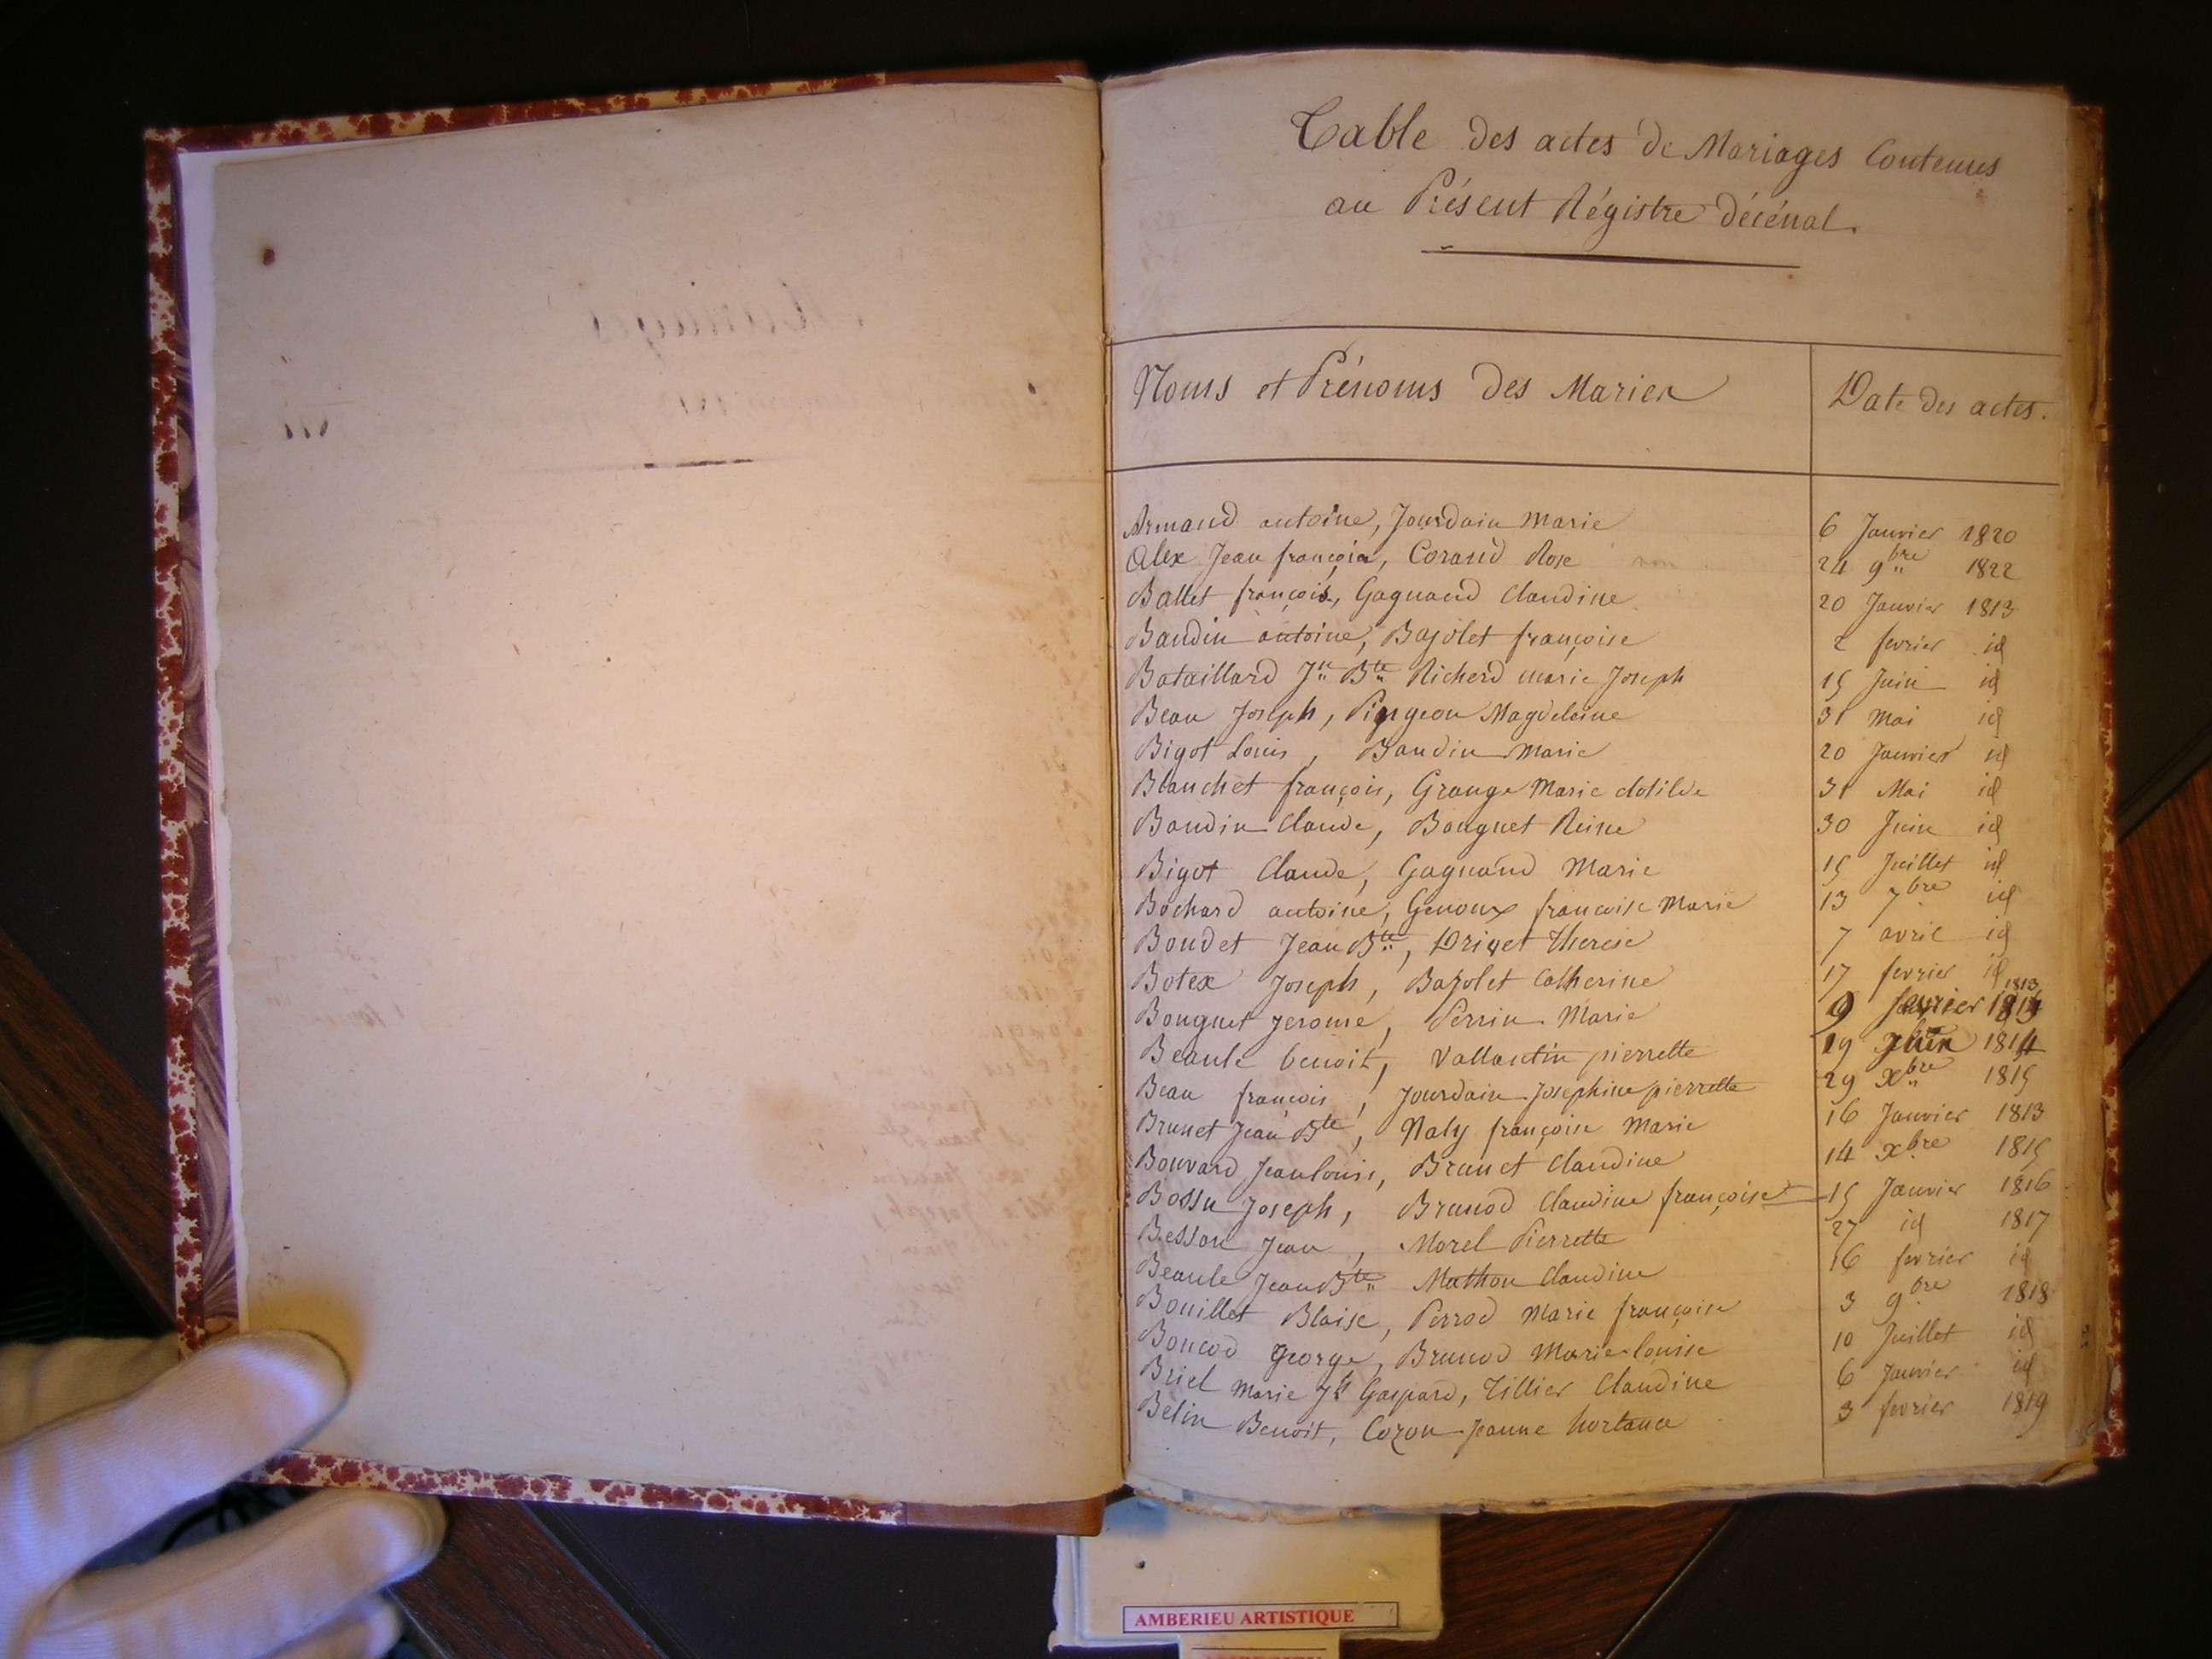 Table des actes de Mariages Contenus
au Présent Régistre décénal.
Noms et Prénoms des Mariés
Date des actes.
Armand antoine, Jourdain Marie 6 Janvier 1820
Alex Jean françois, Corand Rose 24 9bre 1822
Ballet françois, Gagnand Claudine 20 Janvier 1813
Baudin antoine, Bajolet françoise 2 fevrier id
Bataillard Jn Bte Richerd marie Joseph 15 Juin id
Beau Joseph, Pingeon Magdeleine 31 Mai id
Bigot Louis, Baudin Marie 20 Janvier id
Blanchet françois, Grange Marie clotilde 31 Mai id
Baudin Claude, Bouguet Reine 30 Juin id
Bigot Claude, Gagnand Marie 15 Juillet id
Bochard antoine, Genoux francoise Marie 13 7bre id
Boudet Jean Bte, Drivet Therese 7 avril id
Botex Joseph, Bajolet Catherine 17 fevrier id
Bouguet Jerome, Perrin Marie 9 1813
Beaule benoit, Vallantin pierrette 19 1814
Beau francois, Jourdain Josephine pierrette 29 Xbre 1815
Brunet Jean Bte, Naly françoise Marie 16 Janvier 1813
Bouvard Jean louis, Brunet Claudine 14 xbre 1815
Bossu Joseph, Brunod Claudine françoise 15 Janvier 1816
Besson Jean, Morel Pierrette 27 id 1817
Beaule Jean Bte Mathon Claudine 16 fevrier id
Bouillet Blaise, Perrod Marie françoise 3 9bre 1818
Boucod George, Brunod Marie louise 10 Juillet id
Briel Marie Jh Gaspard, Tillier Claudine 6 Janvier id
Belin Benoit, Cozon Jeanne hortance 3 fevrier 1819
AMBERIEU ARTISTIQUE